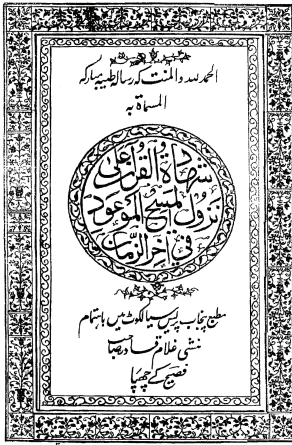 الحمد للہ والمنت کہ رسالہ طیبہ مبارکہ
المسماۃ بہ
شهادة القرآن على
نزول المسيح الموعود
في آخر الزمان
مطبع پنجاب پریس سیالکوٹ میں باہتمام
منشی غلام قادر صاحب
فصیح کے چھپا